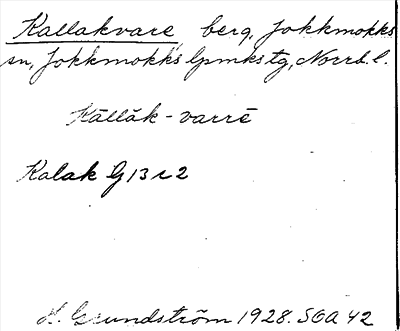 Kallakvare berg, Jokkmokks
sn, Jokkmokks lpmkstg, Norrb. l.
Källăk - varrē
Kalak G 13 r 2
H. Grundström 1928. SOA 42